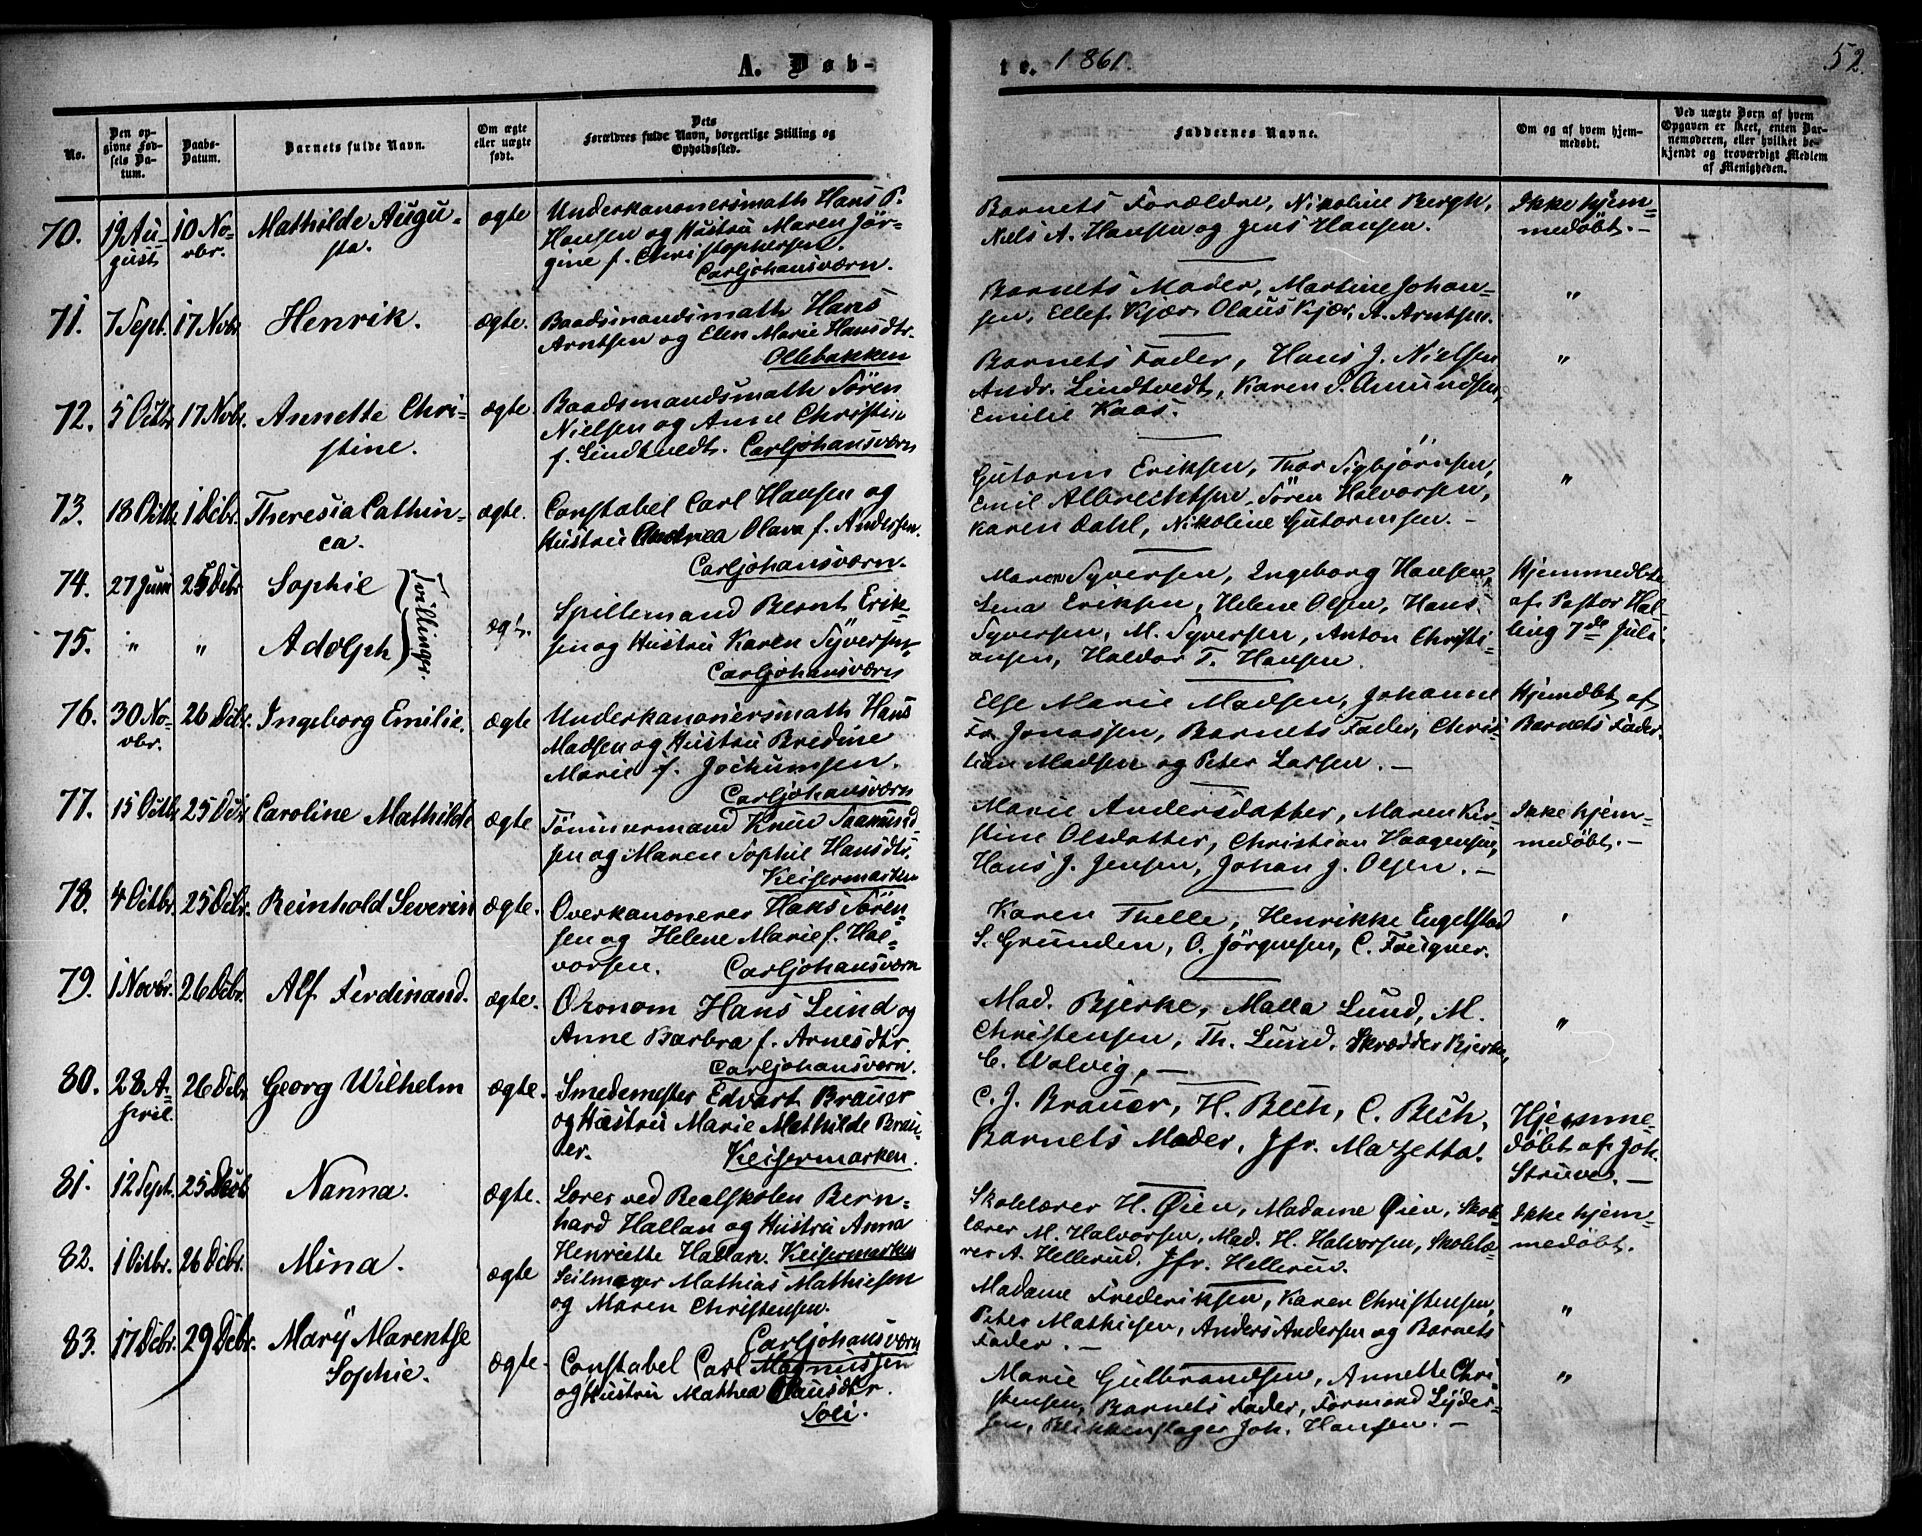 A. Døb-
te. 1861.
52.
No.
Den opgivne Fødsels Datum.
Daabs-Datum.
Barnets fulde Navn.
Om ægte eller uægte født.
Dets Forældres fulde Navn, borgerlige Stilling og Opholdssted.
Faddernes Navne.
Om og af hvem hjemmedøbt.
Ved uægte Børn af hvem Opgaven er skeet, enten Barnemoderen, eller hvilket bekjendt og troværdigt Medlem af Menigheden.
70. 19 August 10 Novbr. Mathilde Augusta. ægte
Underkanoneersmath Hans P.
Hansen og Hustru Maren Jör-
gine f. Christophersen.
Carljohansværn.
Barnets Forældre, Nikoline Bergh,
Niels A. Hansen og Jens Hansen.
Ikke hjem-
medøbt. –
71. 7 Sept. 17 Novbr Henrik. ægte.
Baadsmandsmath Hans
Arntsen og Elen Marie Hansdtr.
Ollebakken
Barnets Moder, Martine Johan-
sen, Ellef Kjær, Olaus Kjær, A. Arntsen.
"
72. 5 Octbr 17 Novbr. Annette Chri-
stine. ægte
Baadsmandsmath Sören
Nielsen og Anne Christine
f. Lindtvedt. Carljohansværn
Barnets Fader, Hans J. Nielsen
Andr. Lindtvedt, Karen S. Amundsen,
Emilie Kaas.
"
73. 18 Octbr. 1 Decbr. Theresia Cathin-
ca. ægte.
Constabel Carl Hansen og
Hustru Andrea Olava f. Andersen.
Carljohansværn.
Gutorm Eriksen, Thor Sigbjörnsen,
Emil Albrechtsen, Sören Halvorsen,
Karen Dahl, Nikoline Gutormsen. –
"
74. 27 Juni 25 Decbr Sophie
75. " " Adolph
Tvillinger.
ægte.
Spillemand Bernt Erik-
sen og Hustru Karen Syversen
Carljohansværn
Maren Syversen, Ingeborg Hansen,
Lena Eriksen, Helene Olsen, Hans
Syversen, M. Syversen, Anton Christi-
ansen, Haldor T. Hansen.
Hjemmedøbte
af Pastor Hal-
ling 7de Juli
76. 30 No-
vbr. 26 Decbr. Ingeborg Emilie. ægte
Underkanoneersmath Hans
Madsen og Hustru Bredine
Marie f. Jochumsen.
Carljohansværn
Else Marie Madsen, Johanne
Fr. Jonassen, Barnets Fader, Chris-
tian Madsen og Peter Larsen. –
Hjemdøbt af
Barnets Fader.
77. 15 Octbr 25 Decbr Caroline Mathilde ægte
Tömmermand Knud Saamund-
sen og Maren Sophie Hansdtr.
Keisermarken
Marie Andersdatter, Maren Kir-
stine Olsdatter, Christian Haagensen,
Hans J. Jensen, Johan J. Olsen. –
Ikke hjem-
medøbt. –
78. 4 Octbr. 25 Decbr. Reinhold Severin ægte.
Overkanoneer Hans Sören-
sen og Helene Marie f. Hal-
vorsen. Carljohansværn
Karen Thelle, Henrikke Engelstad
S. Grunden, O. Jörgensen, C. Freigner.
"
79. 1 Novbr. 26 Decbr. Alf Ferdinand. ægte.
Økonom Hans Lund og
Anne Barbra f. Arnesdtr.
Carljohansværn.
Mad. Bjerke, Malla Lund, M.
Christensen, Th. Lund, Skrædder Bjerke,
C. Walvig. –
"
80. 28 A-
pril. 26 Decbr Georg Wilhelm ægte.
Smedemester Edvart Brauer
og Hustru Marie Mathilde Brau-
er. Keisermarken.
C. J. Brauer, H. Bech, C. Bech,
Barnets Moder, Jfr. Mazetta.
Hjemme-
døbt af Joh.
Struve. –
81. 12 Sept. 25 Decbr Nanna. ægte.
Lærer ved Realskolen Bern-
hard Hallan og Hustru Anna
Henriette Hallan. Keisermarken
Skolelærer H. Øien, Madame Øien, Skole-
lærer M. Halvorsen, Mad. H. Halvorsen, Skolelæ-
rer A. Hellerud, Jfr. Hellerud.
Ikke hjem-
medøbt.
82. 1 Octbr. 26 Decbr. Mina. ægte
Seilmager Mathias Mathiesen
og Maren Christensen.
Carljohansværn
Madame Frederiksen, Karen Christensen,
Peter Mathisen, Anders Andersen og Barnets
Fader. –
"
83. 17 Decbr. 29 Decbr. Marÿ Marentse
Sophie. ægte.
Constabel Carl Magnussen
og Hustru Mathea Clausdtr.
Soli.
Marie Gulbrandsen, Annette Chri-
stensen, Barnets Fader, Formand Lyder-
sen, Blikkenslager Joh. Hansen. –
"